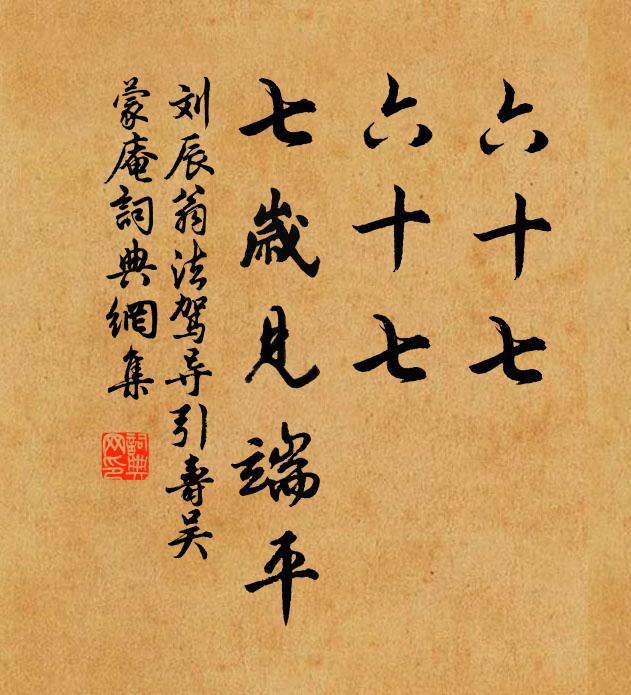 六十七
六十七
七歲見端平
刘辰翁法驾导引壽吴
蒙庵詞典網集
詞典網印